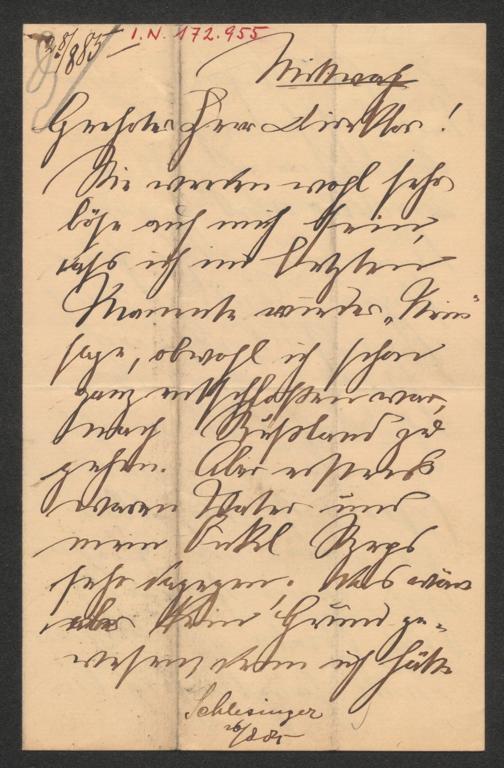 26/8 885
I.N. 172.955
Mittwoch
Geehrter Herr Direktor!
Sie werden wohl sehr
böse auf mich sein,
daß ich im letzten
Momente wieder „Nein“
sage, obwohl ich schon
ganz entschlossen war,
nach Rußland zu
gehen. Aber erstens
waren Vater und
mein Onkel Szeps
sehr dagegen. Das wäre
aber kein Grund ge-
wesen, denn ich hätte
Schlesinger
26/8 85